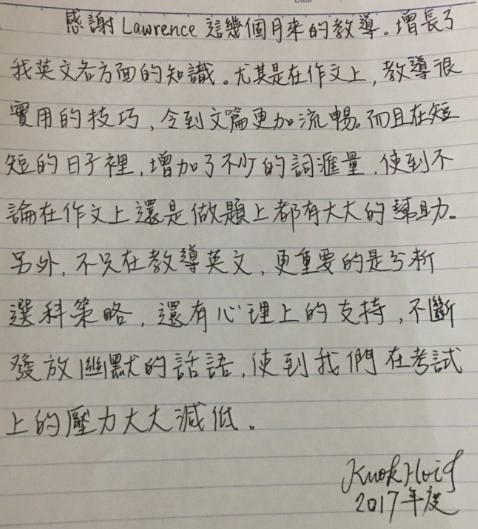 感謝Lawrence這幾個月來的教導。增長了
我英文各方面的知識。尤其是在作文上,教導很
實用的技巧,令到文篇更加流暢。而且在短
短的日子裡,增加了不少的詞滙量,使到不
論在作文上還是做題上都有大大的幫助。
另外,不只在教導英文,更重要的是分析
選科策略,還有心理上的支持,不斷
發放幽默的話語,使到我們在考試
上的壓力大大減低。
2017年度